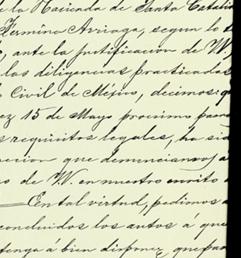 de la Hacienda de Santa Catalin
Fermino Arriaga, segun lo
, ante la justificacion de V,
las diligencias practicadas
Civil de Mejico, decimos: q
ez 15 de Mayo proximo pasa
s requisitos legales, ha sid
pecion que denunciamos, a
o de V. en nuestro escrito
En tal virtud, pedimos a
concluidos los autos á que
tenga á bien disponer, que pas